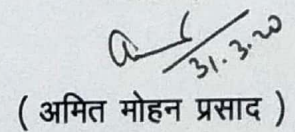 31.3.20
( अमित मोहन प्रसाद )